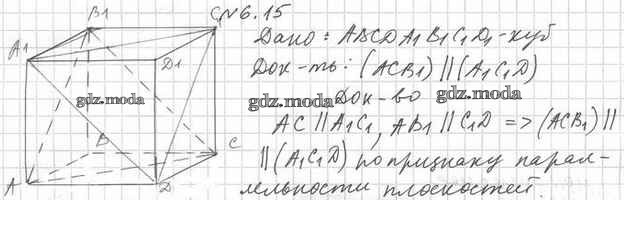 B1
C1
№6.15
A1
D1
gdz.moda
B
C
A
D
Дано: ABCDA1B1C1D1-куб
Док-ть: (ACB1) || (A1C1D)
gdz.moda
Док-во
gdz.moda
AC || A1C1, AB1 || C1D => (ACB1) ||
|| (A1C1D) по признаку парал-
лельности плоскостей.